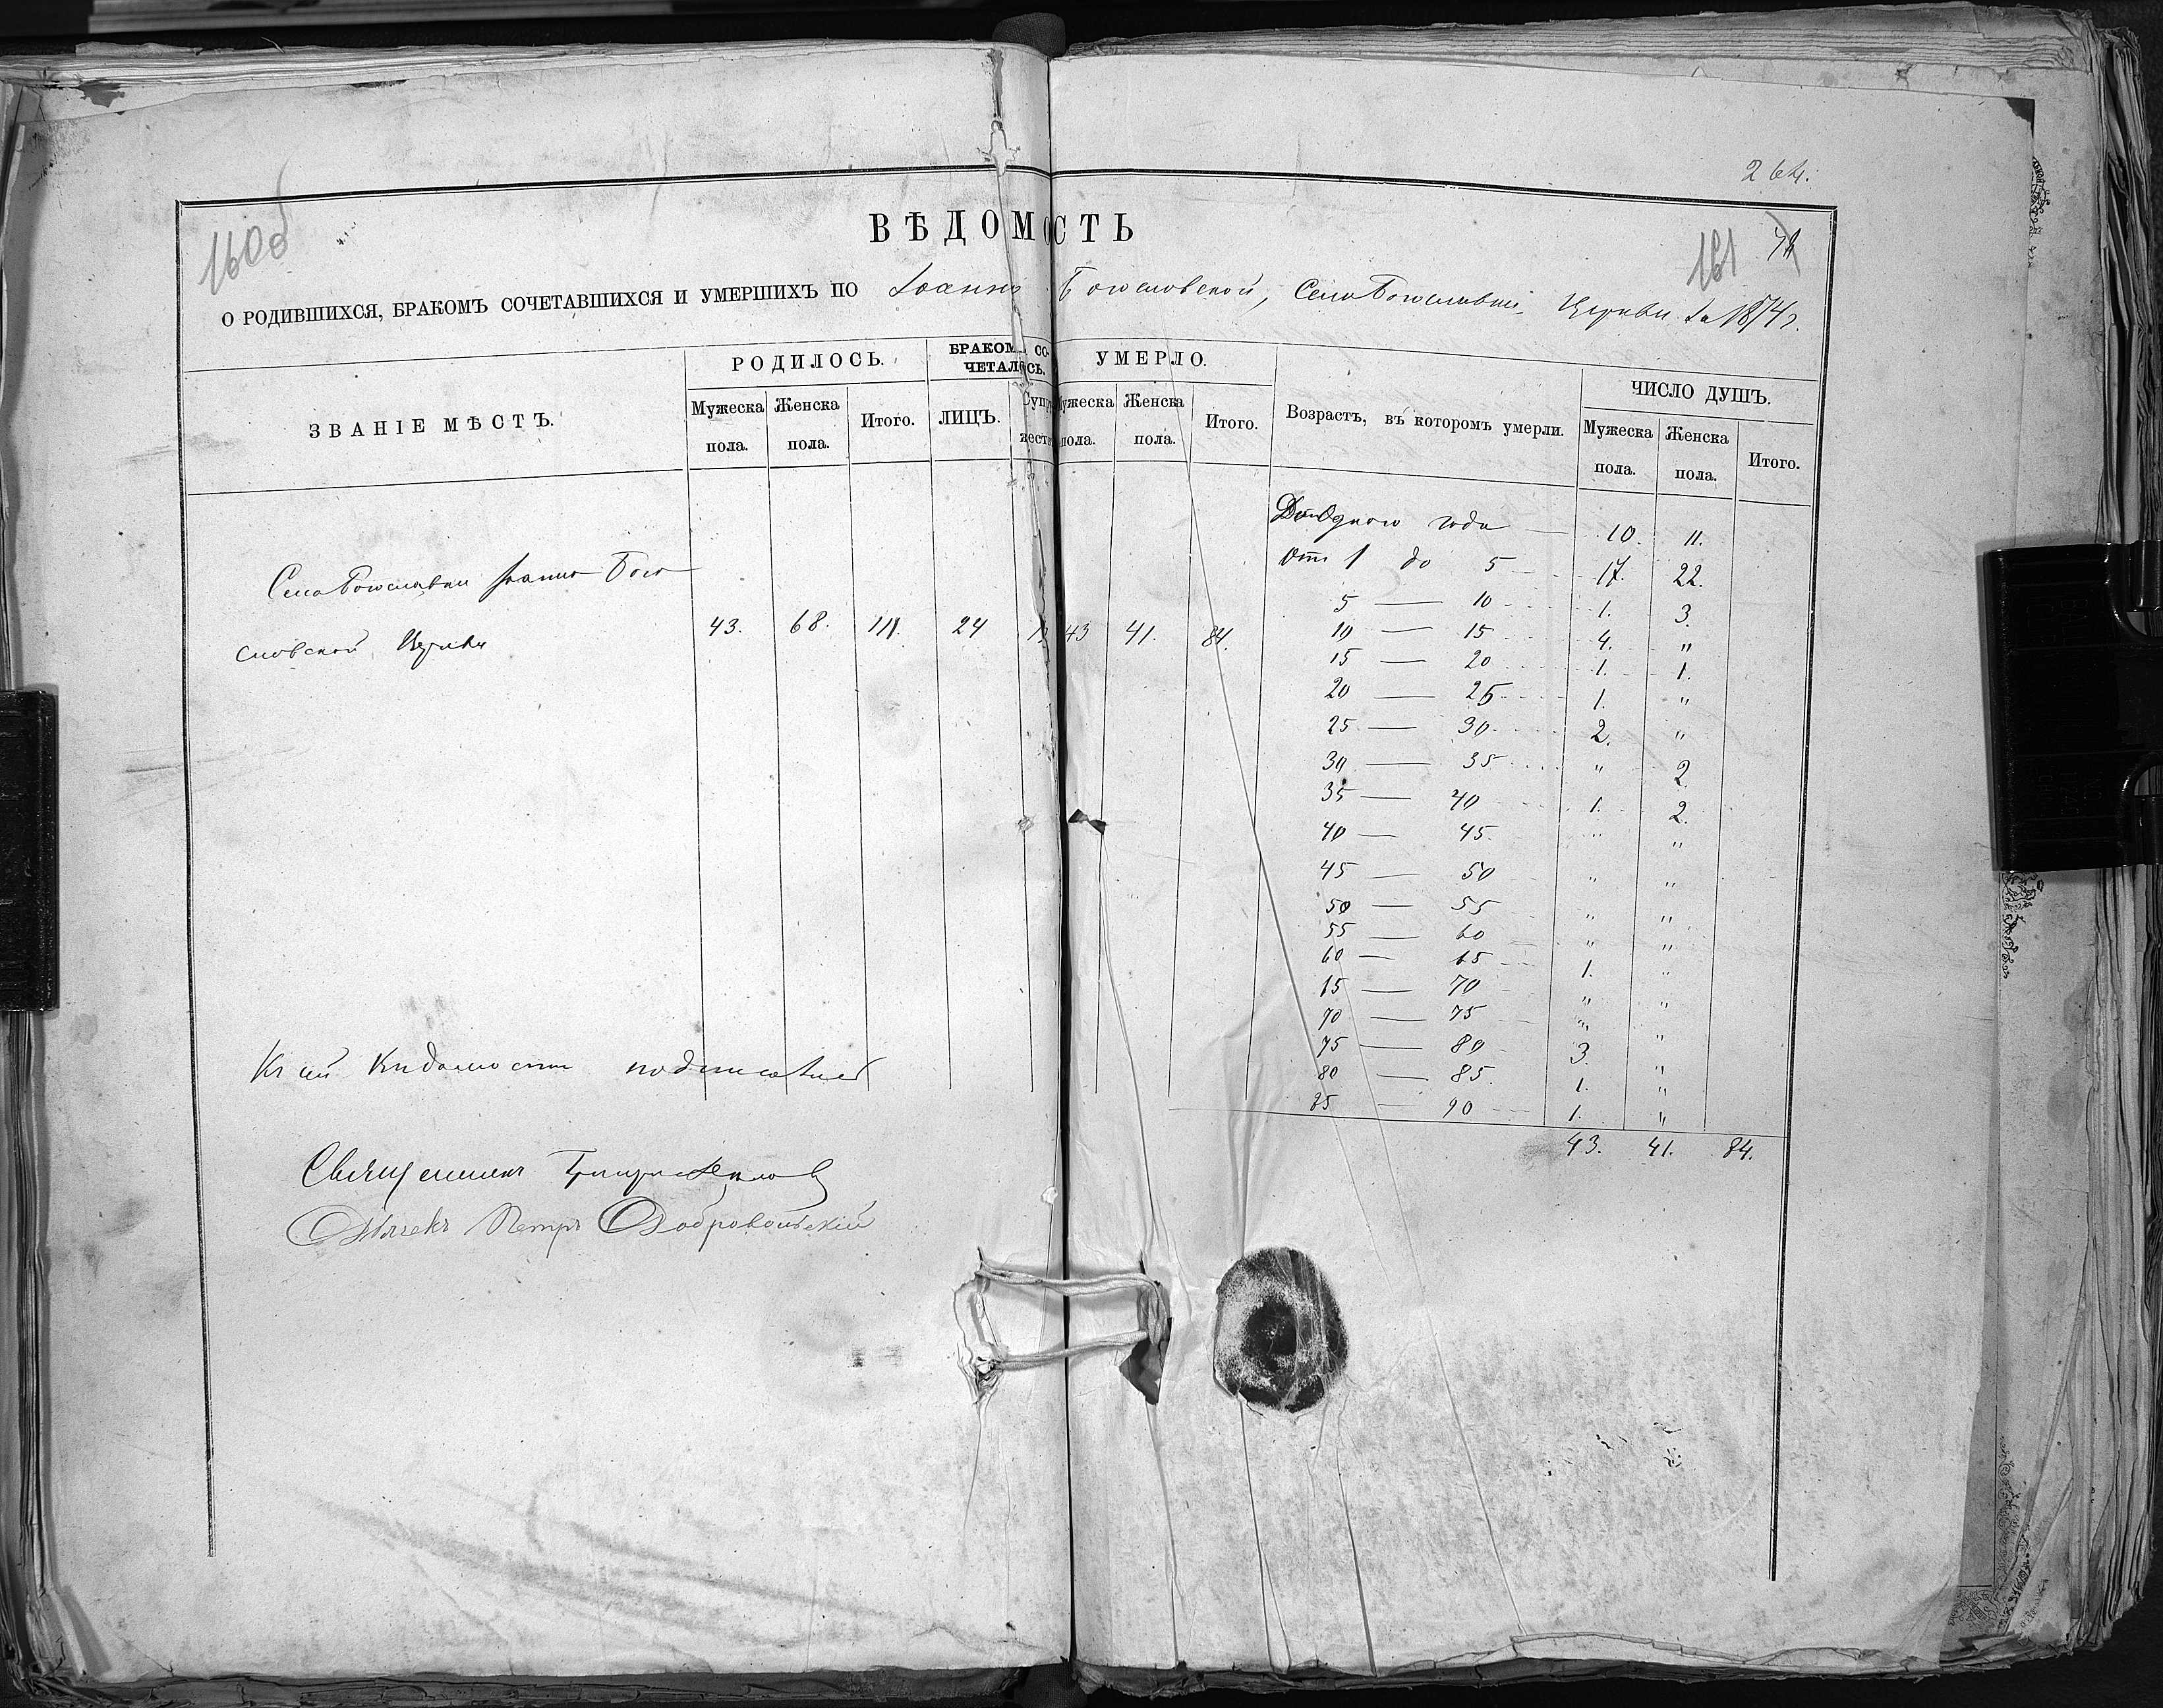 264.
160об
161
ВѢДОМОСТЬ
О РОДИВШИХСЯ, БРАКОМЪ СОЧЕТАВШИХСЯ И УМЕРШИХЪ ПО Іоанно Богословской, Села Богославки Церкви за 1874 г.
ЗВАНІЕ МѢСТЪ.
РОДИЛОСЬ.
Мужеска пола.
Женска пола.
Итого.
БРАКОМЪ СО-
ЧЕТАЛОСЬ.
ЛИЦЪ.
УМЕРЛО.
Мужеска пола.
Женска пола.
Итого.
Возрастъ, въ которомъ умерли.
ЧИСЛО ДУШЪ.
Мужеска пола.
Женска пола.
Итого.
Села Богославки Іоанно Бого
словской Церкви
43. 68. 111. 24 43 41. 84.
До Одного года — 10. 11.
От 1 до 5 17. 22.
5 — 10 1. 3.
10 — 15 4. "
15 — 20 1. 1.
20 — 25 1. "
25 — 30 2. "
30 — 35 " 2
35 — 40 1. 2.
40 — 45. " "
45 — 50 " "
50 — 55 " "
55 — 60 " "
60 — 65 1. "
65 — 70 " "
70 — 75 " "
75 — 80 3. "
80 — 85. 1. "
85 — 90 1. "
43. 41. 84.
Священникъ
Дьячекъ Петръ Добровольскій